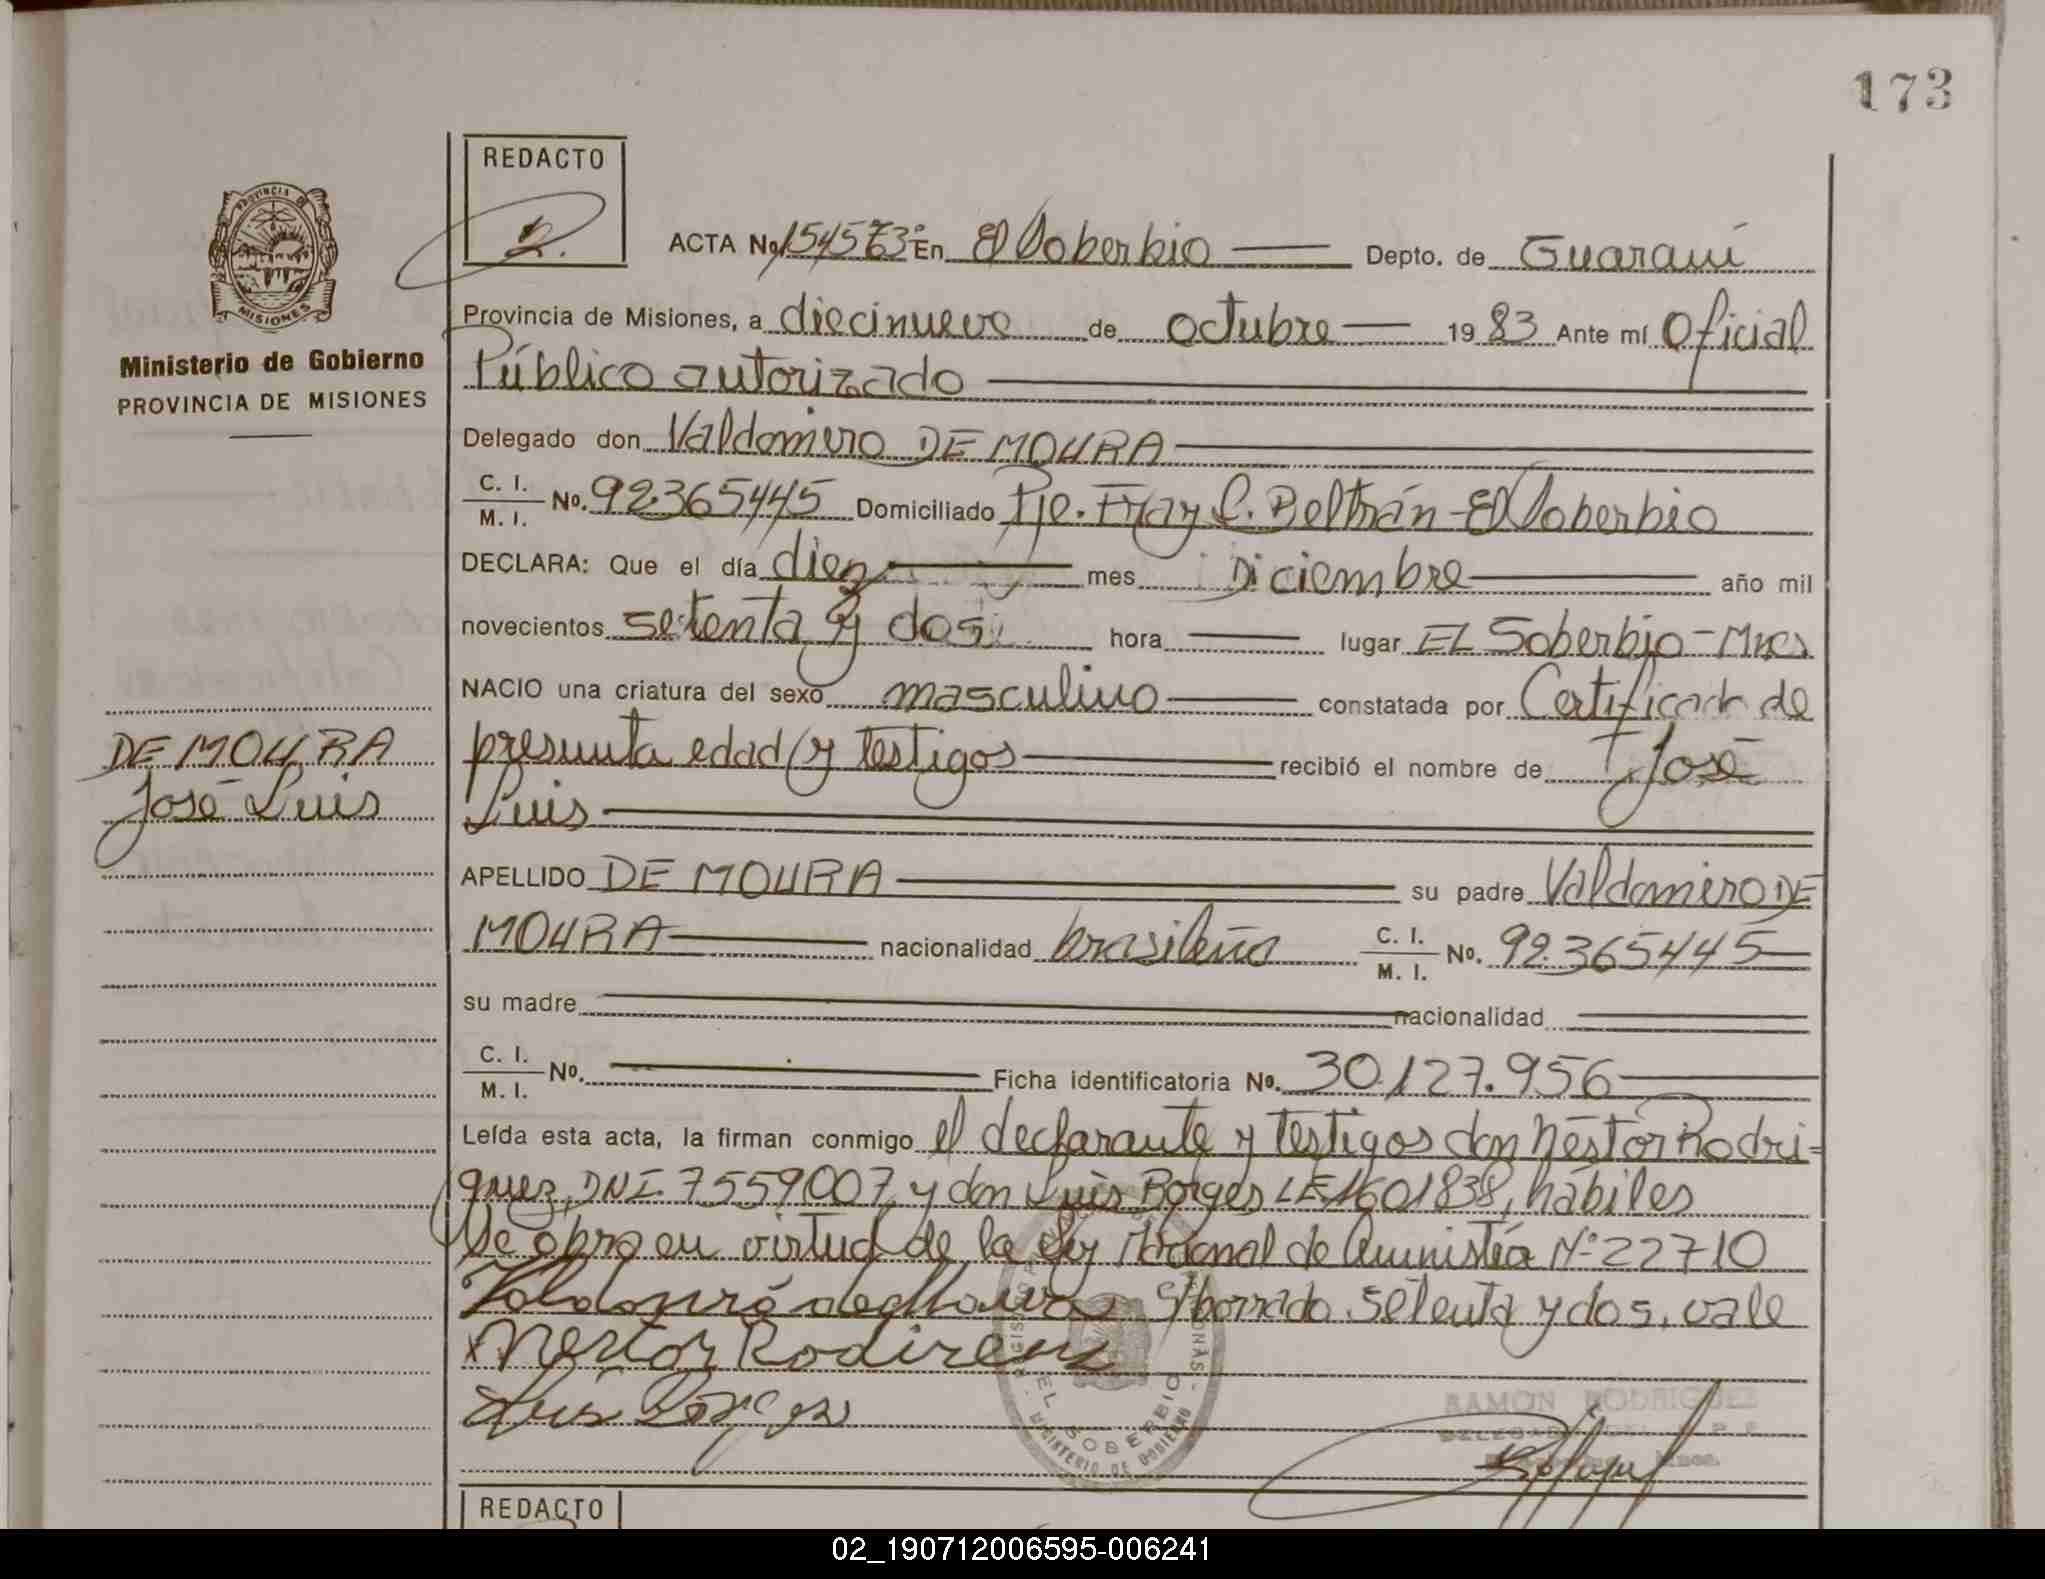 173
REDACTO
R.
ACTA No. En El Soberbio Depto. de Guaraní
Provincia de Misiones, a diecinueve de octubre 1983 Ante mí Oficial
Público autorizado
Delegado don Valdomiro DE MOURA
C. I.
M. I.
No. 92365445 Domiciliado Pje. Fray L. Beltrán - El Soberbio
DECLARA: Que el día diez mes Diciembre año mil
novecientos setenta y dos hora lugar EL Soberbio - Mnes
NACIO una criatura del sexo masculino constatada por Certificado de
presunta edad y testigos recibió el nombre de José
Luis
APELLIDO DE MOURA su padre Valdomiro DE
MOURA nacionalidad brasileña C. I.
M. I.
No. 92.365445
su madre nacionalidad
C. I.
M. I.
No. Ficha identificatoria No. 30.127.956
Leída esta acta, la firman conmigo el declarante y testigos don Néstor Rodri=
guez, DNI. 7559007, y don Luis Borges LE 1601838, hábiles
Se obro en virtud de la Ley Nacional de Amnistía Nº 22710
S/borrado setenta y dos, vale
Luis Borges
EL SOBERBIO
MINISTERIO DE GOBIERNO
RAMON RODRIGUEZ
REDACTO
PROVINCIA DE
MISIONES
Ministerio de Gobierno
PROVINCIA DE MISIONES
DE MOURA
José Luis
02_190712006595-006241